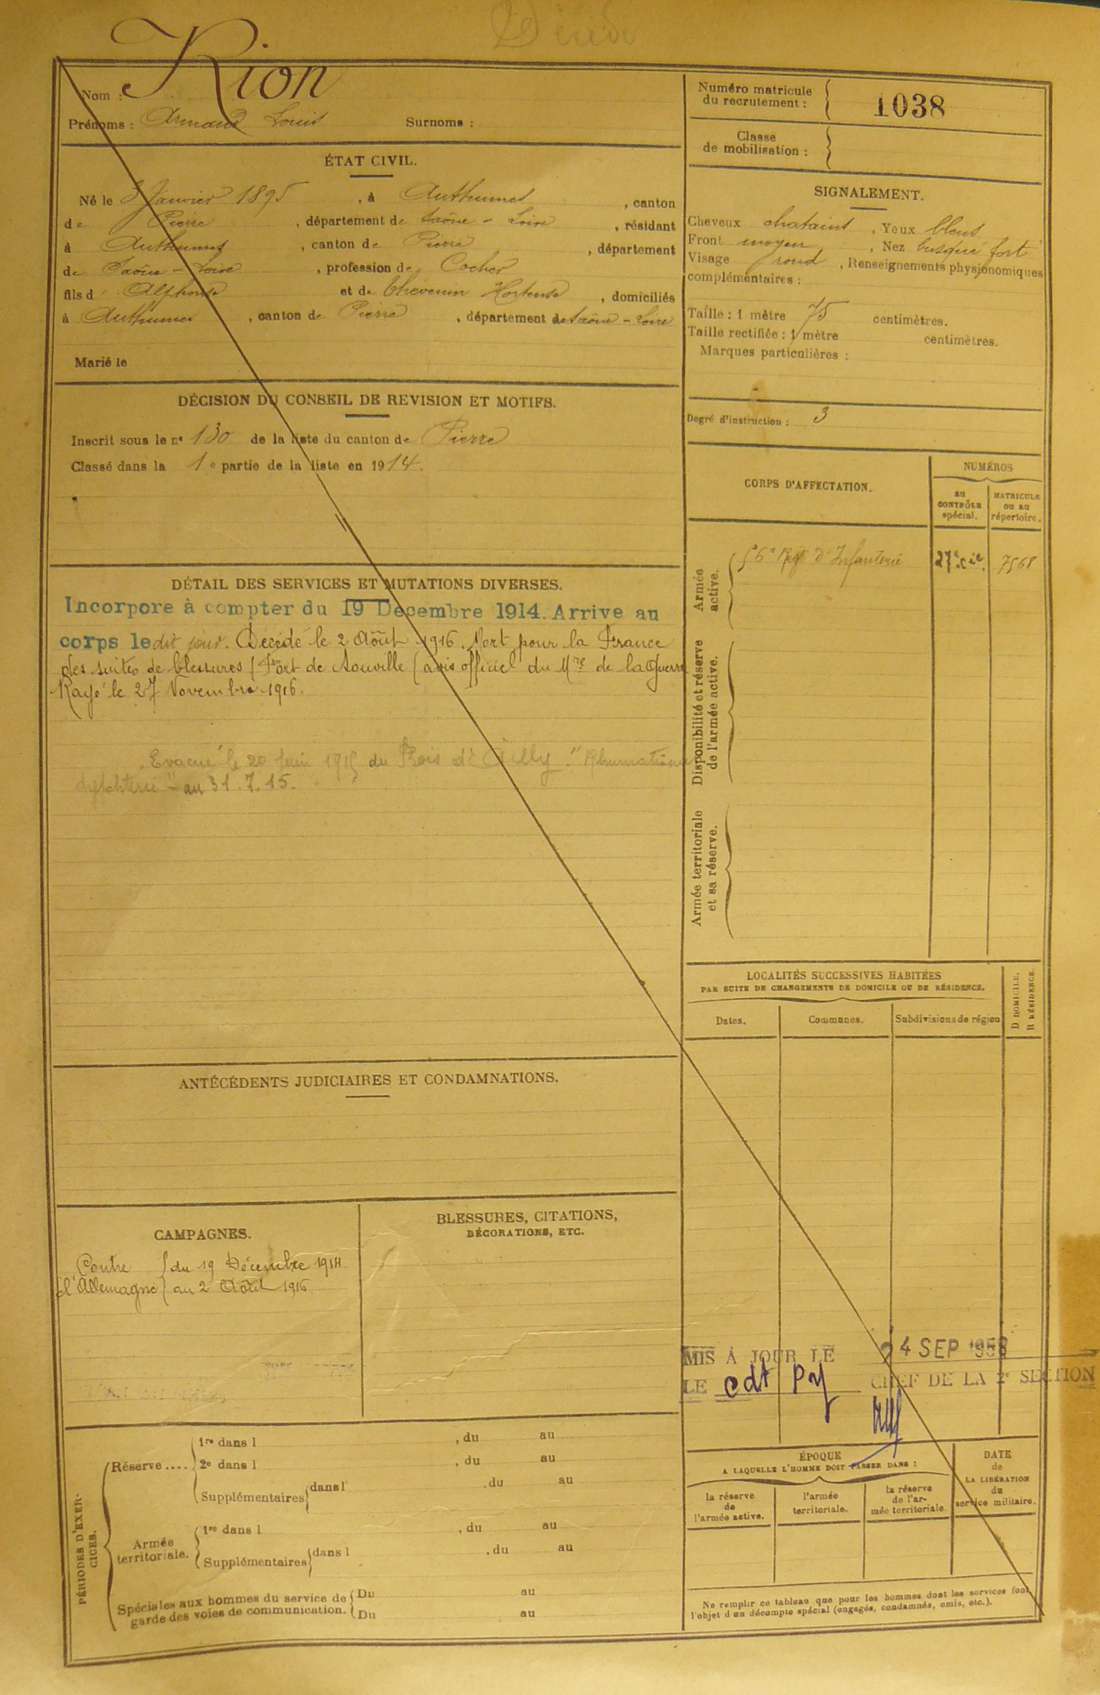 Décédé
Nom : Rion
Prénoms : Armand Louis Surnoms :
ÉTAT CIVIL.
Né le 3 Janvier 1895, à Authumes, canton
de Pierre, département de Saône-Loire, résidant
à Authumes, canton de Pierre, département
de Saône-Loire, profession de Cocher
fils d' Alphonse et de Thevenin Hortense, domiciliés
à Authumes, canton de Pierre, département de Saône-Loire
Marié le
DÉCISION DU CONSEIL DE REVISION ET MOTIFS.
Inscrit sous le n° 130 de la liste du canton de Pierre
Classé dans la 1e partie de la liste en 1914.
DÉTAIL DES SERVICES ET MUTATIONS DIVERSES.
Incorpore à compter du 19 Decembre 1914. Arrive au
corps le dit jour. Décédé le 2 Août 1916. Mort pour la France
des suites de blessures (Fort de Souville (avis officiel du Mre de la Guerre
Rayé le 27 Novembre 1916.
Evacué le 20 Juin 1915 du Bois d'Ailly
au 31.7.15.
ANTÉCÉDENTS JUDICIAIRES ET CONDAMNATIONS.
CAMPAGNES.
Contre l'Allemagne { du 19 Décembre 1914
au 2 Août 1916
BLESSURES, CITATIONS,
DÉCORATIONS, ETC.
PÉRIODES D'EXERCICES.
Réserve .... 1re dans l , du au
2e dans l , du au
Supplémentaires dans l' , du au
Armée territoriale. 1re dans l , du au
Supplémentaires dans l , du au
Spéciales aux hommes du service de Du au
garde des voies de communication. Du au
Numéro matricule
du recrutement : 1038
Classe
de mobilisation :
SIGNALEMENT.
Cheveux chatains, Yeux bleus
Front moyen, Nez busqué fort
Visage rond, Renseignements physionomiques
complémentaires :
Taille : 1 mètre 75 centimètres.
Taille rectifiée : 1 mètre centimètres.
Marques particulières :
Degré d'instruction : 3
CORPS D'AFFECTATION.
NUMÉROS
AU CONTRÔLE spécial.
MATRICULE OU AU répertoire.
Armée active.
56e Régt d'Infanterie 27e cie. 7568
Disponibilité et réserve de l'armée active.
Armée territoriale et sa réserve.
LOCALITÉS SUCCESSIVES HABITÉES
PAR SUITE DE CHANGEMENTS DE DOMICILE OU DE RÉSIDENCE.
D DOMICILE.
R RÉSIDENCE.
Dates. Communes. Subdivisions de région
MIS À JOUR LE 4 SEP 1958
LE cdt CHEF DE LA 2e SECTION
ÉPOQUE
A LAQUELLE L'HOMME DOIT PASSER DANS :
la réserve de l'armée active.
l'armée territoriale.
la réserve de l'armée territoriale.
DATE de LA LIBÉRATION du service militaire.
Ne remplir ce tableau que pour les hommes dont les services font
l'objet d'un décompte spécial (engagés, condamnés, omis, etc.).